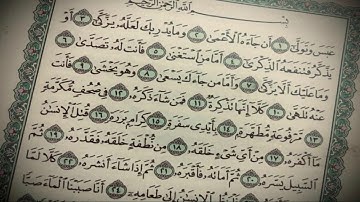 بِسْمِ اللَّهِ الرَّحْمَٰنِ الرَّحِيمِ
عَبَسَ وَتَوَلَّىٰ ١ أَن جَاءَهُ الْأَعْمَىٰ ٢ وَمَا يُدْرِيكَ لَعَلَّهُ يَزَّكَّىٰ ٣ أَوْ
يَذَّكَّرُ فَتَنفَعَهُ الذِّكْرَىٰ ٤ أَمَّا مَنِ اسْتَغْنَىٰ ٥ فَأَنتَ لَهُ تَصَدَّىٰ ٦
وَمَا عَلَيْكَ أَلَّا يَزَّكَّىٰ ٧ وَأَمَّا مَن جَاءَكَ يَسْعَىٰ ٨ وَهُوَ يَخْشَىٰ ٩ فَأَنتَ
عَنْهُ تَلَهَّىٰ ١٠ كَلَّا إِنَّهَا تَذْكِرَةٌ ١١ فَمَن شَاءَ ذَكَرَهُ ١٢ فِي صُحُفٍ مُّكَرَّمَةٍ
١٣ مَّرْفُوعَةٍ مُّطَهَّرَةٍ ١٤ بِأَيْدِي سَفَرَةٍ ١٥ كِرَامٍ بَرَرَةٍ ١٦ قُتِلَ الْإِنسَانُ
مَا أَكْفَرَهُ ١٧ مِنْ أَيِّ شَيْءٍ خَلَقَهُ ١٨ مِن نُّطْفَةٍ خَلَقَهُ فَقَدَّرَهُ ١٩ ثُمَّ
السَّبِيلَ يَسَّرَهُ ٢٠ ثُمَّ أَمَاتَهُ فَأَقْبَرَهُ ٢١ ثُمَّ إِذَا شَاءَ أَنشَرَهُ ٢٢ كَلَّا لَمَّا
الْإِنسَانُ إِلَىٰ طَعَامِهِ ٢٤ أَنَّا صَبَبْنَا الْمَاءَ صَبًّا